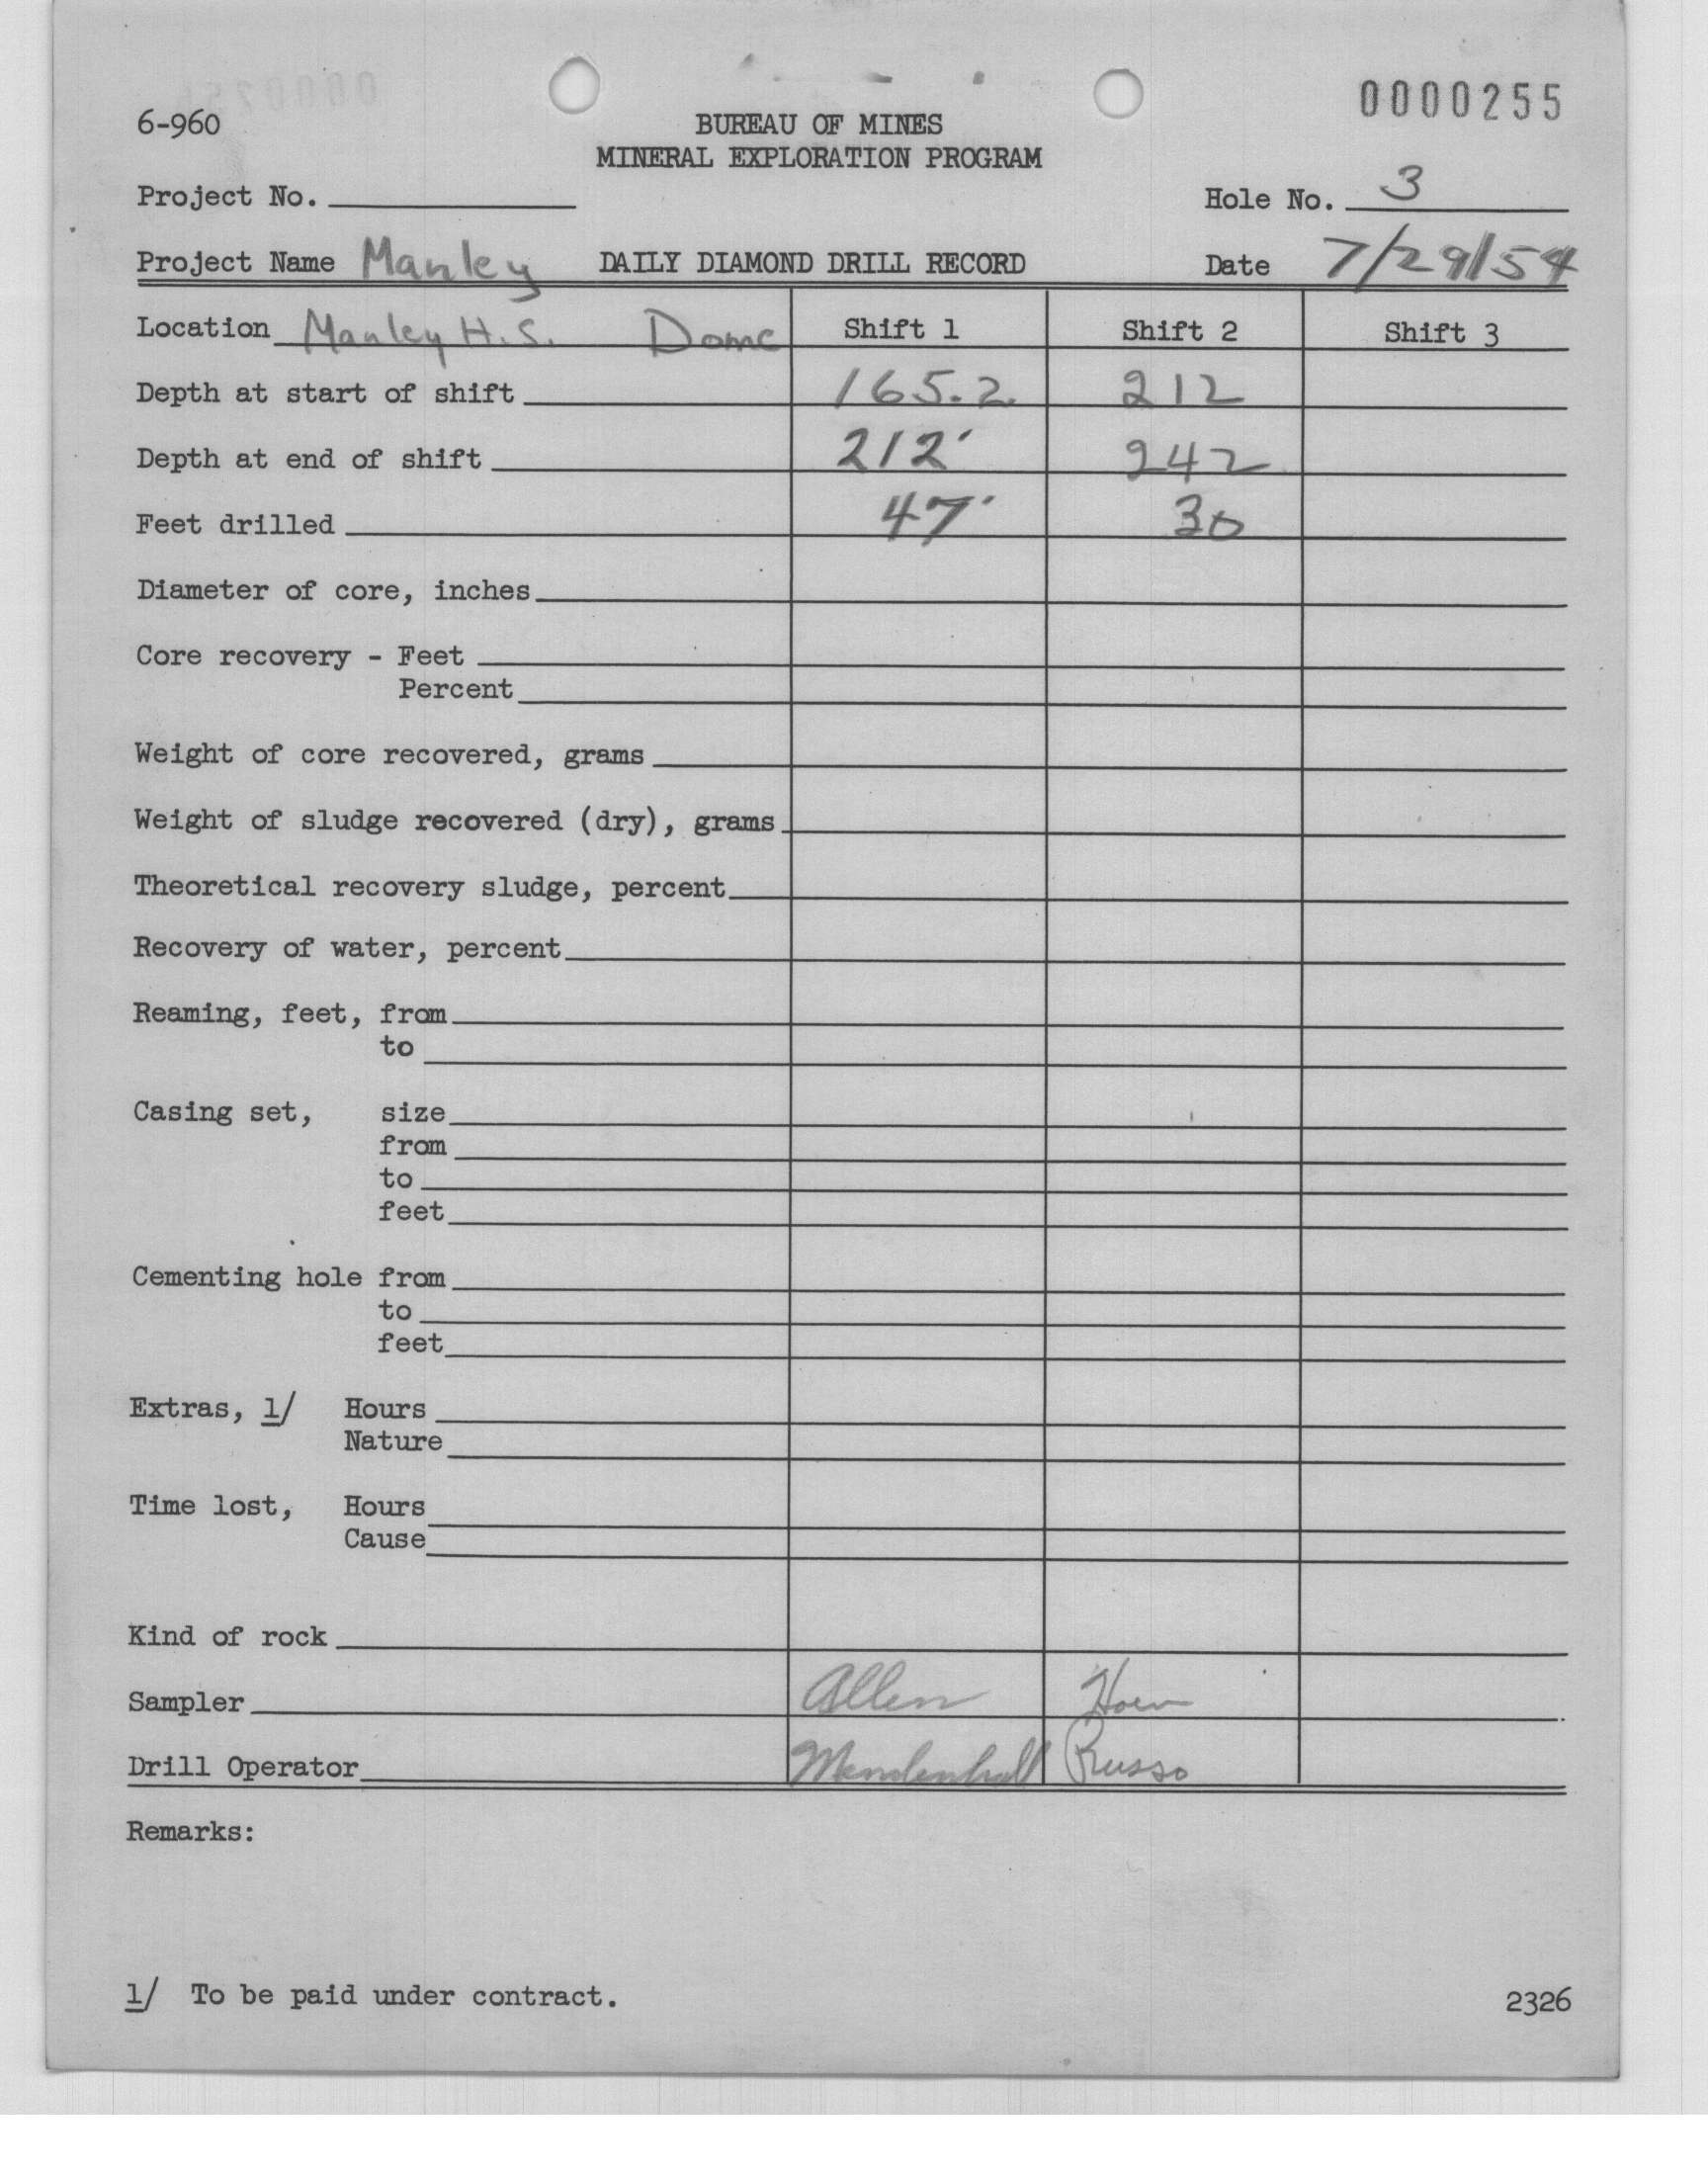 0000255
6-960
BUREAU OF MINES
MINERAL EXPLORATION PROGRAM
Project No.
Hole No. 3
Project Name Manley DAILY DIAMOND DRILL RECORD Date 7/29/54
Location Manley H.S. Dome Shift 1 Shift 2 Shift 3
Depth at start of shift 165.2 212
Depth at end of shift 212' 242
Feet drilled 47' 30
Diameter of core, inches
Core recovery - Feet
Percent
Weight of core recovered, grams
Weight of sludge recovered (dry), grams
Theoretical recovery sludge, percent
Recovery of water, percent
Reaming, feet, from
to
Casing set, size
from
to
feet
Cementing hole from
to
feet
Extras, 1/ Hours
Nature
Time lost, Hours
Cause
Kind of rock
Sampler Allen
Drill Operator Mendenhall Russo
Remarks:
1/ To be paid under contract.
2326